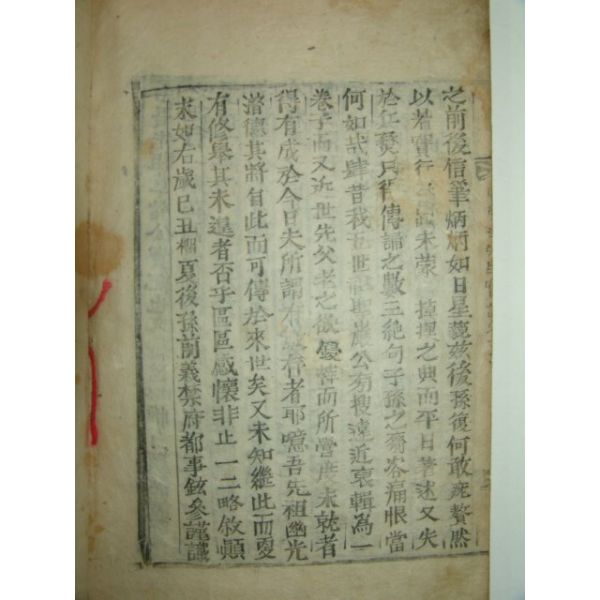 之前後信筆炳炳如日星藐玆後孫復何敢疣贅然
以若實行 未蒙 㨔埋之典而平日著述又失
於灰燹只得傳誦之數三絶句子孫之齎咨痛恨當
何如哉肆昔我五世祖聖巖公旁搜遠近裒輯爲一
卷子而又近世先父老之欲鋟榟而所營度未就者
得有成於今日夫所謂有 存者耶噫吾先祖幽光
潛德其將自此而可傳於來世矣又未知繼此而更
有修擧其未遑者否乎區區感懷非止一二略敘顚
末如右歲己丑榴夏後孫前義禁府都事鉉參謹識